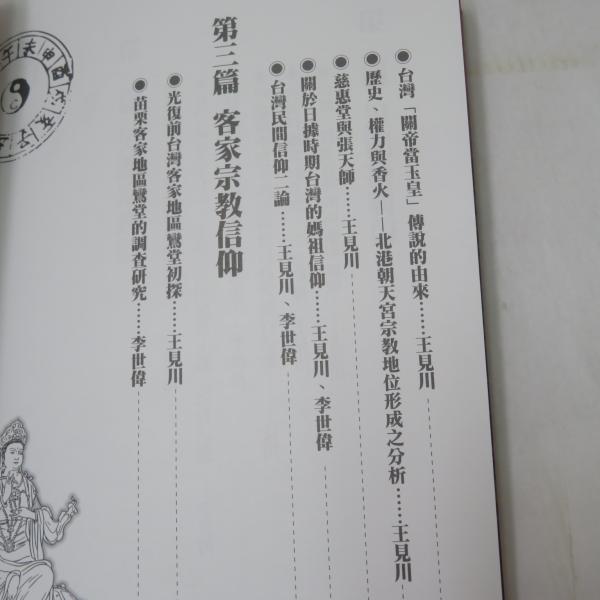 ●台灣「關帝當玉皇」傳說的由來……王見川
●歷史、權力與香火——北港朝天宮宗教地位形成之分析……王見川
●慈惠堂與張天師……王見川
●關於日據時期台灣的媽祖信仰……王見川、李世偉
●台灣民間信仰二論……王見川、李世偉
第三篇 客家宗教信仰
●光復前台灣客家地區鸞堂初探……王見川
●苗栗客家地區鸞堂的調查研究……李世偉
午未申酉